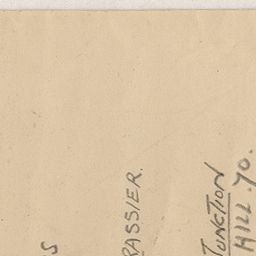 S
RASSIER.
JUNCTION
HILL. 70.